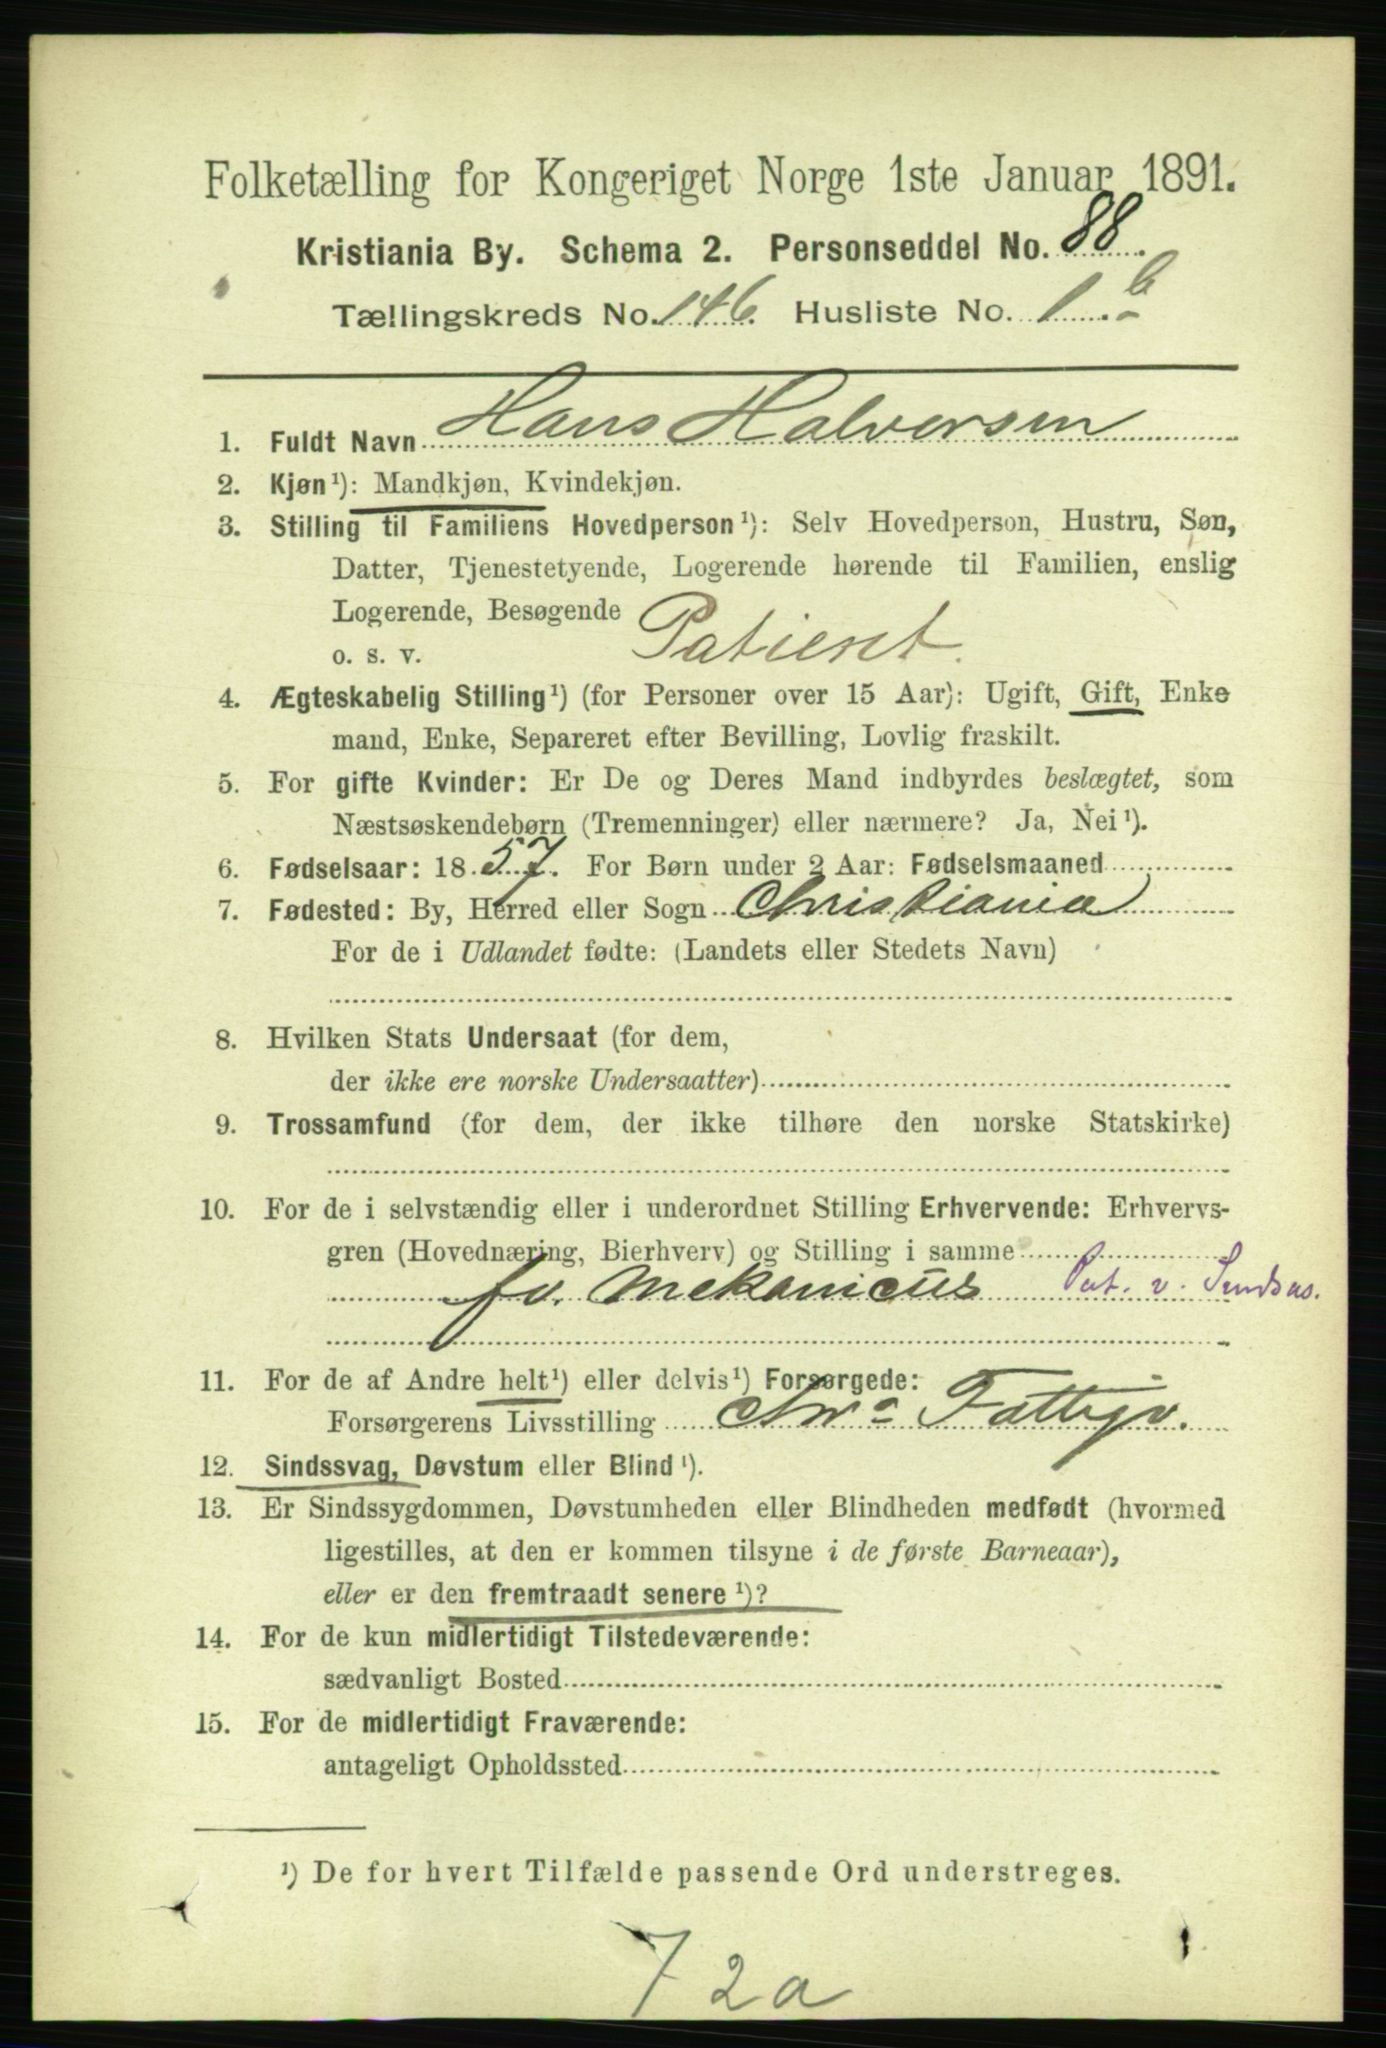 Folketælling for Kongeriget Norge 1ste Januar 1891.
Kristiania By. Schema 2. Personseddel No. 88
Tællingskreds No. 146 Husliste No. 1 b
1. Fuldt Navn Hans Halversen
2. Kjøn¹): Mandkjøn, Kvindekjøn.
3. Stilling til Familiens Hovedperson¹): Selv Hovedperson, Hustru, Søn,
Datter, Tjenestetyende, Logerende hørende til Familien, enslig
Logerende, Besøgende
o. s. v. Patient.
4. Ægteskabelig Stilling¹) (for Personer over 15 Aar): Ugift, Gift, Enke
mand, Enke, Separeret efter Bevilling, Lovlig fraskilt.
5. For gifte Kvinder: Er De og Deres Mand indbyrdes beslægtet, som
Næstsøskendebørn (Tremenninger) eller nærmere? Ja, Nei¹).
6. Fødselsaar: 1857. For Børn under 2 Aar: Fødselsmaaned
7. Fødested: By, Herred eller Sogn Christiania
For de i Udlandet fødte: (Landets eller Stedets Navn)
8. Hvilken Stats Undersaat (for dem,
der ikke ere norske Undersaatter)
9. Trossamfund (for dem, der ikke tilhøre den norske Statskirke)
10. For de i selvstændig eller i underordnet Stilling Erhvervende: Erhvervs-
gren (Hovednæring, Bierhverv) og Stilling i samme
fv. Mekanicus Pat. v. Sindsas.
11. For de af Andre helt¹) eller delvis¹) Forsørgede:
Forsørgerens Livsstilling Chra Fattigv.
12. Sindssvag, Døvstum eller Blind¹).
13. Er Sindssygdommen, Døvstumheden eller Blindheden medfødt (hvormed
ligestilles, at den er kommen tilsyne i de første Barneaar),
eller er den fremtraadt senere¹)?
14. For de kun midlertidigt Tilstedeværende:
sædvanligt Bosted
15. For de midlertidigt Fraværende:
antageligt Opholdssted
¹) De for hvert Tilfælde passende Ord understreges.
72a